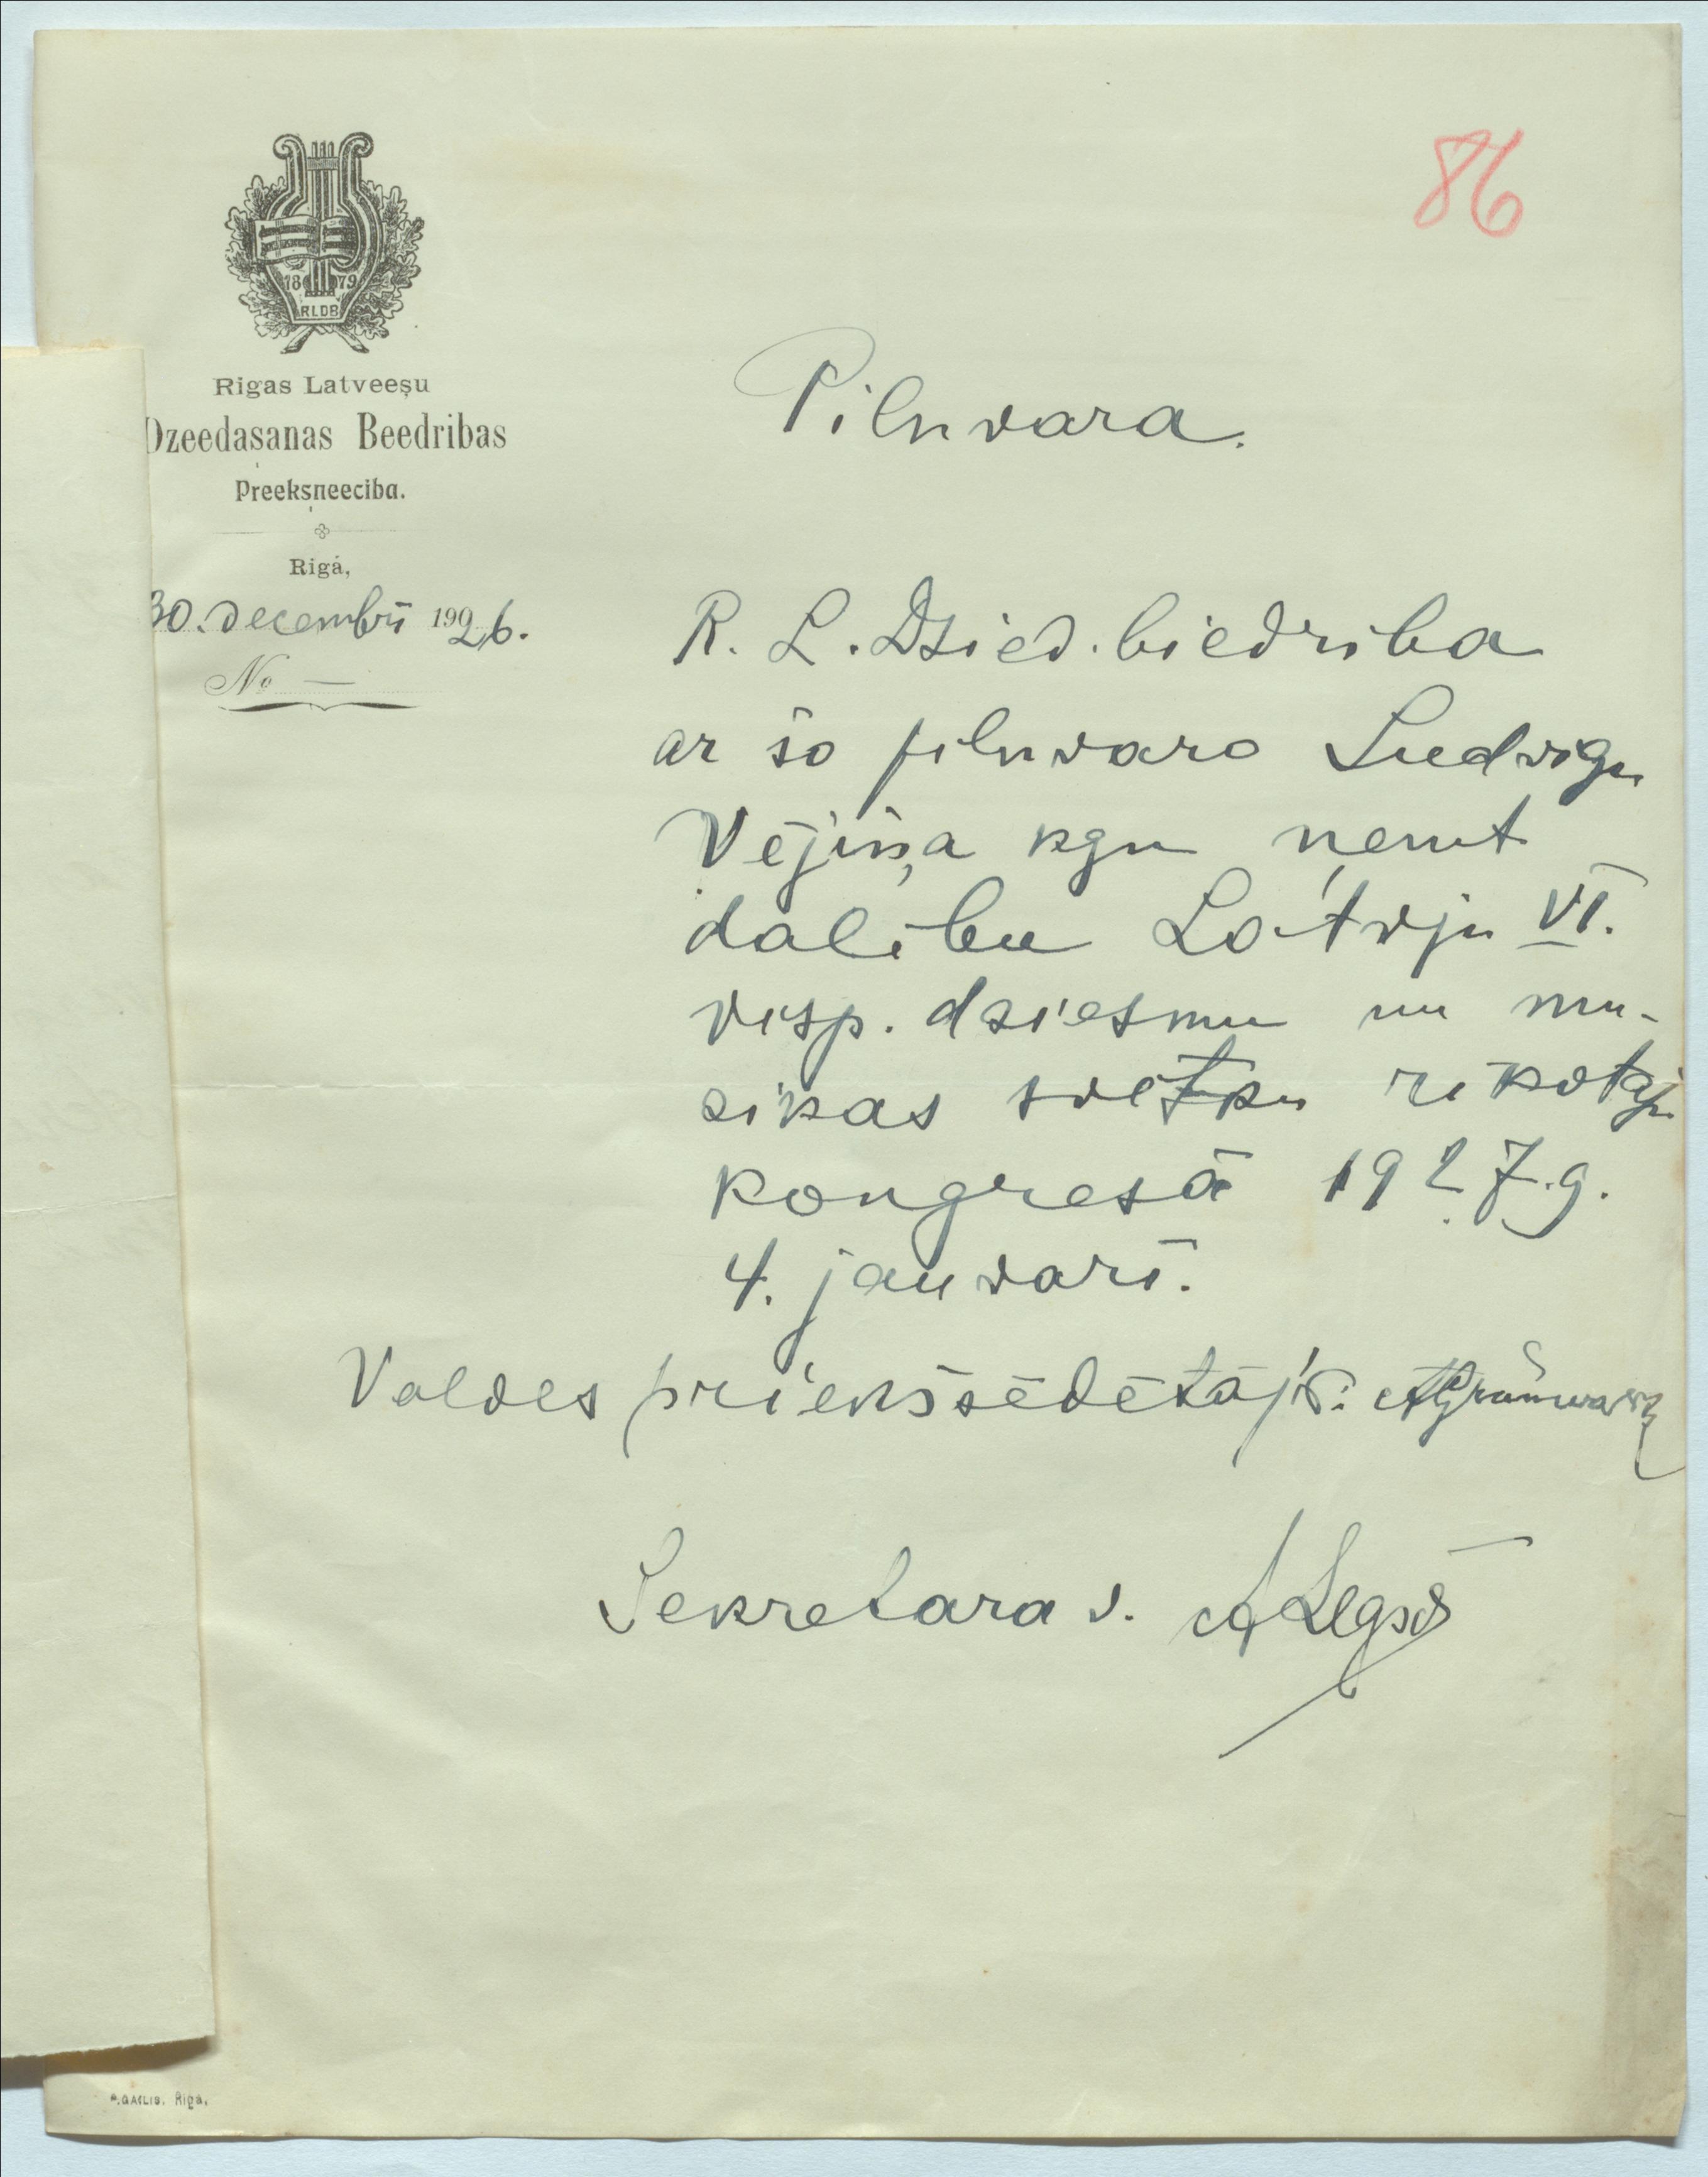 86
1879
RLDB
Rigas Latveeşu
Dzeedaşanas Beedribas
Preekşneeciba.
Rigâ,
30. decembrī 1926.
No —
Pilnvara.
R. L. Dzied. biedrība
ar šo pilnvaro Ludvigu
Vējiņa kgu ņemt
dalību Latvju VI.
visp. dziesmu un mu-
zikas svētku rīkotāju
kongresā 1927. g.
4. janvarī.
Valdes priekšsēdētājs:
Sekretara v.
P. GAILIS. Rigâ,